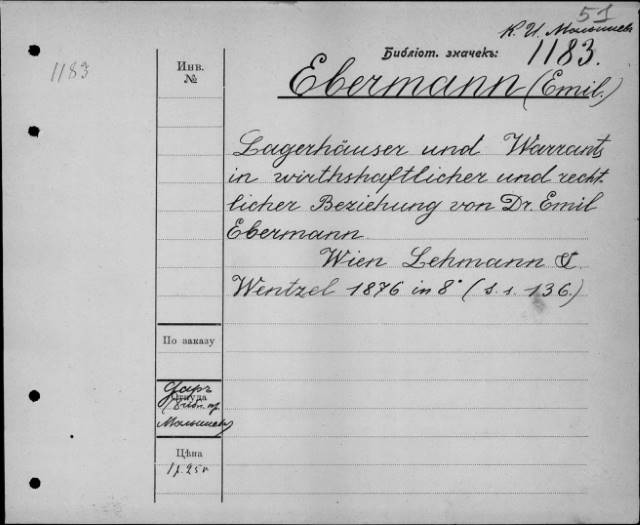 51
К. И. Малышев
Библіот. значекъ:
1183.
1183
Инв.
№
Ebermann (Emil.)
Lagerhäuser und Warrants
in wirthshaftlicher und recht
licher Beziehung von Dr. Emil
Ebermann
Wien Lehmann &
Wentzel 1876 in 8° (s. 1. 136.)
По заказу
Откуда
Даръ
(библ. пр
Малышев)
Цѣна
1 р. 25 к